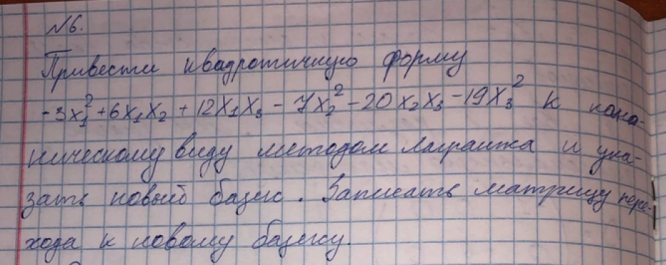 №6.
Привести квадратичную форму
-3x₁² + 6x₁x₂ + 12x₁x₃ - 7x₂² - 20x₂x₃ - 19x₃² к кано-
ническому виду методом Лагранжа и ука-
зать новый базис. Записать матрицу пере-
хода к новому базису.